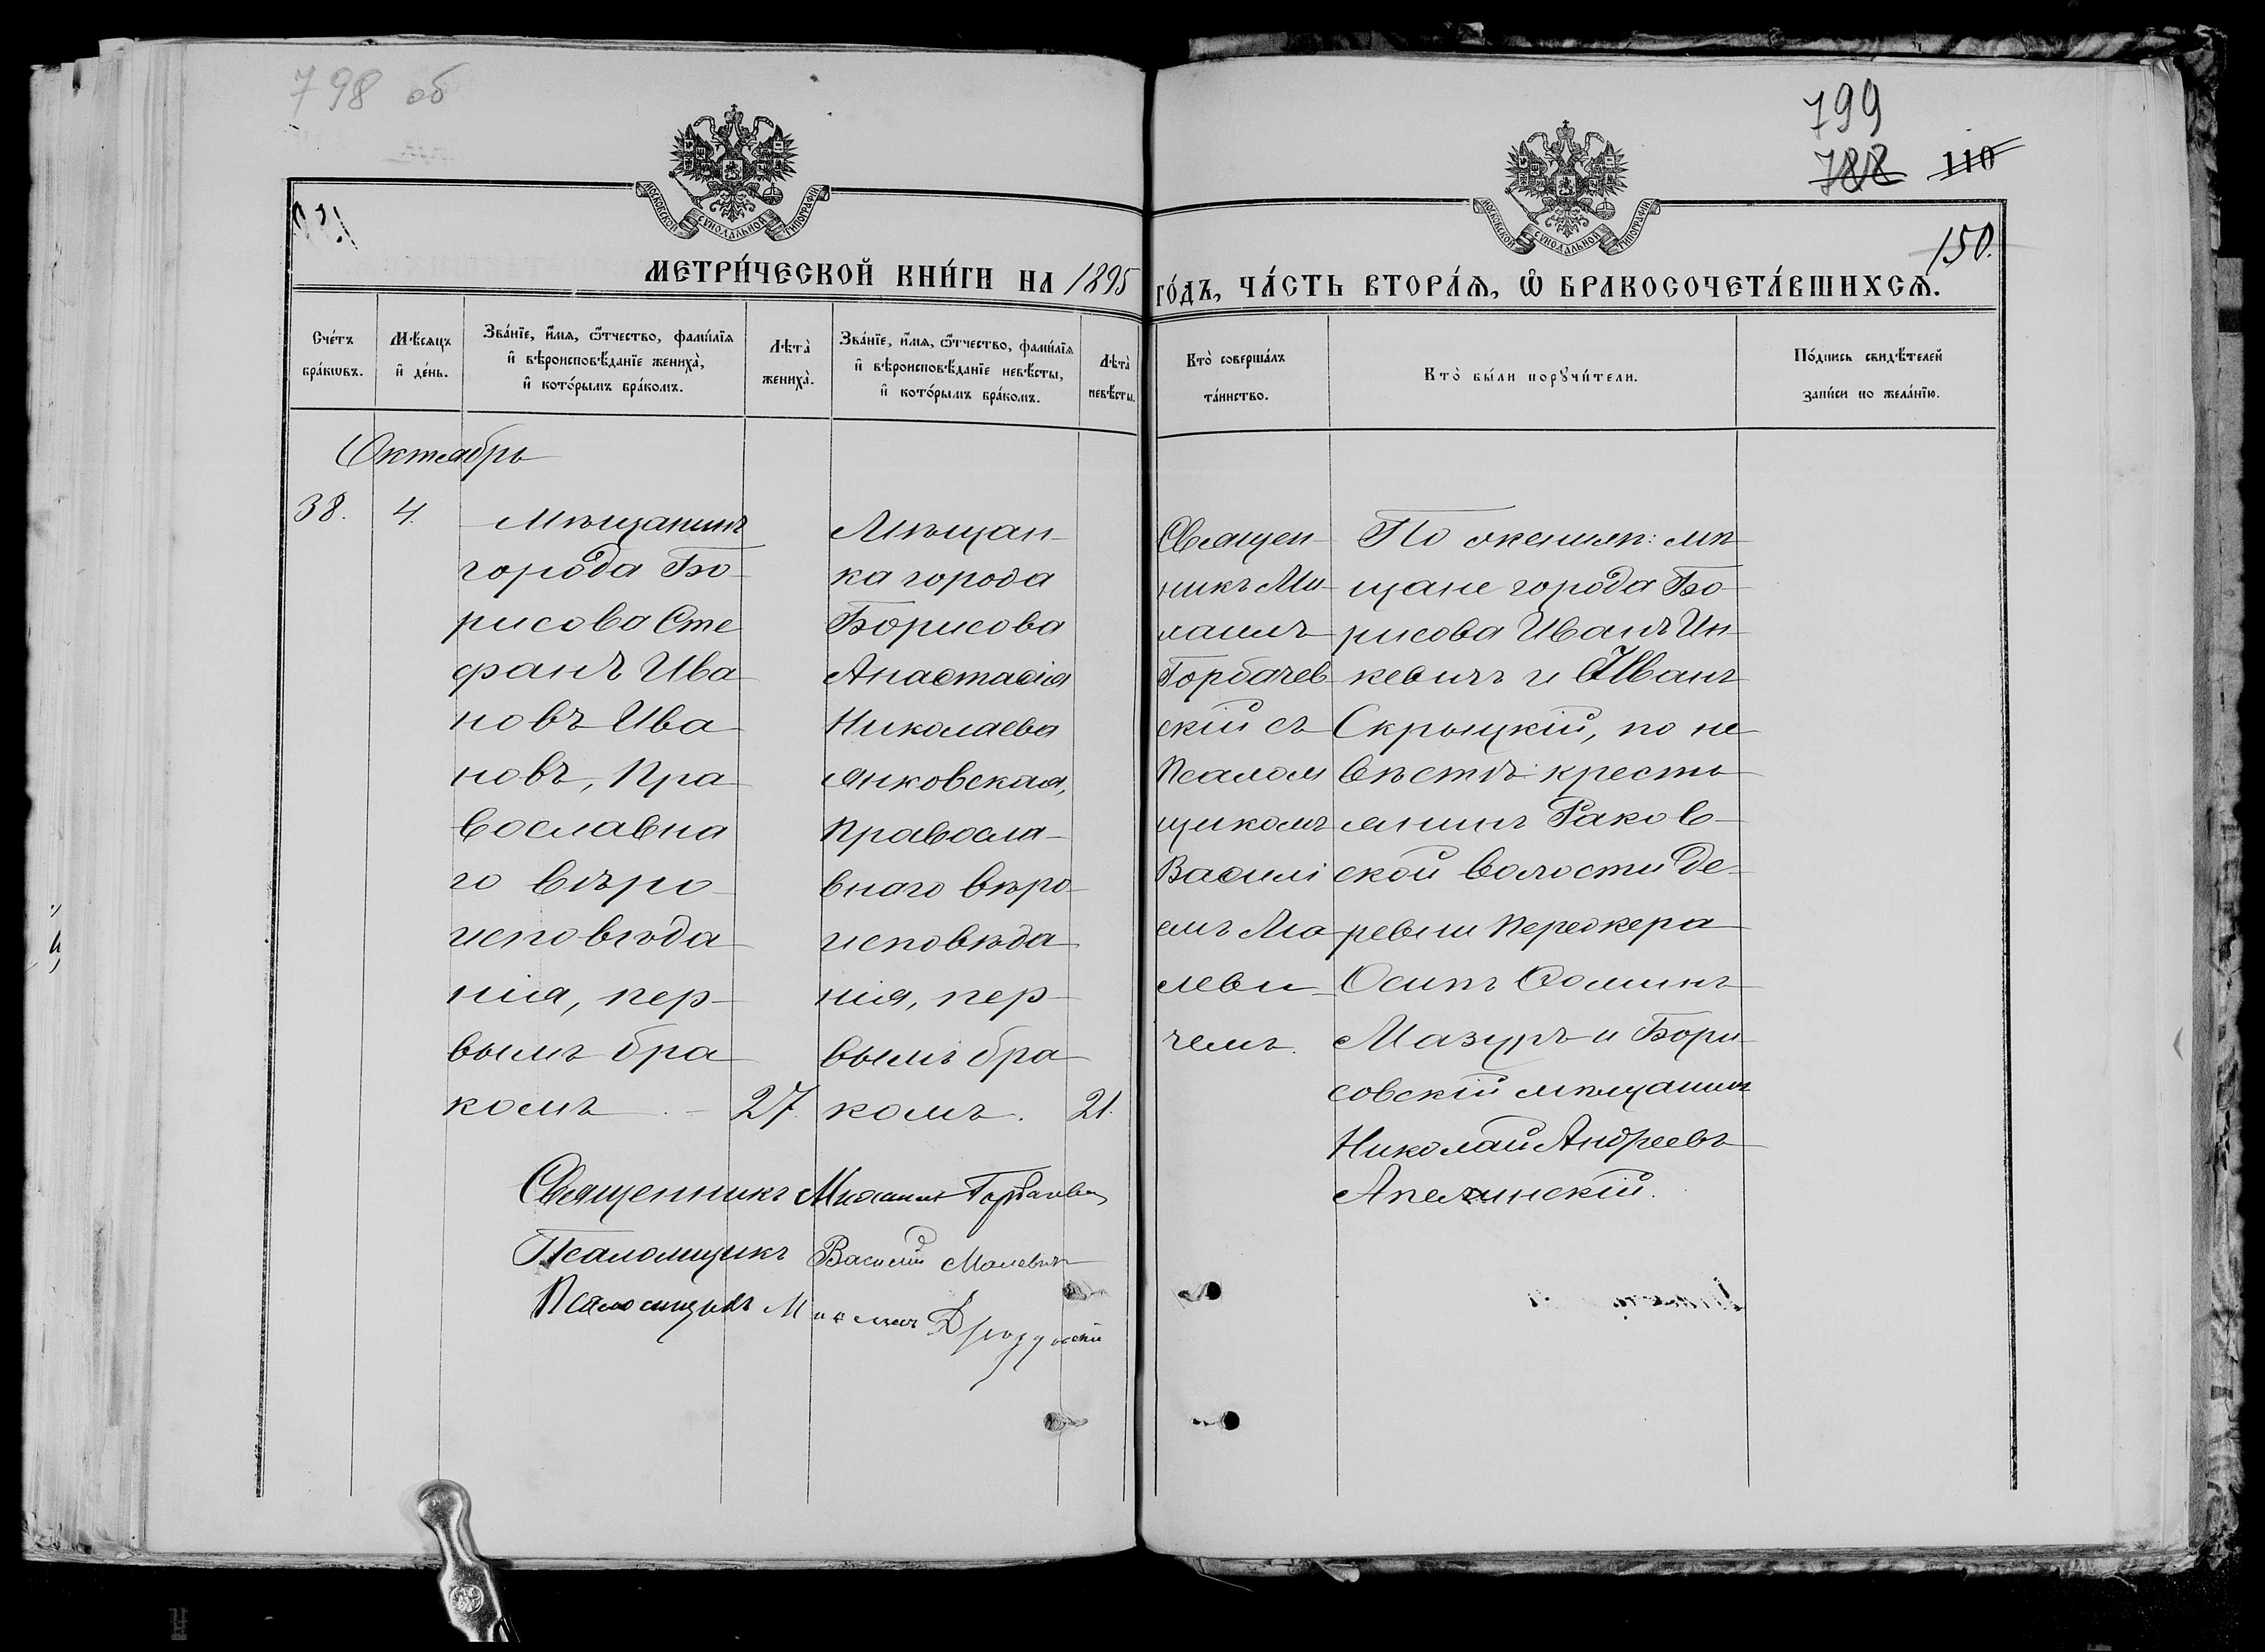 798 об
799
788 110
150.
МОСКОВСКОЙ СѴНОДАЛЬНОЙ ТИПОГРАФІИ
МОСКОВСКОЙ СѴНОДАЛЬНОЙ ТИПОГРАФІИ
МЕТРИ́ЧЕСКОЙ КНИ́ГИ НА 1895 ГО́ДЪ, ЧА́СТЬ ВТОРА́Ѧ, Ѽ БРАКОСОЧЕТА́ВШИХСѦ.
Сче́тъ
бра́кѡвъ.
Мѣ́сяцъ
и҆ де́нь.
Зва́нїе, и҆́мя, ѻ҆́тчество, фами́лїя
и҆ вѣроисповѣ́данїе жениха̀,
и҆ кото́рымъ бра́комъ.
Лѣта̀
жениха̀.
Зва́нїе, и҆́мя, ѻ҆́тчество, фами́лїя
и҆ вѣроисповѣ́данїе невѣ́сты,
и҆ кото́рымъ бра́комъ.
Лѣта̀
невѣ́сты.
Кто̀ соверша́лъ
та́инство.
Кто̀ бы́ли порꙋчи́тели.
По́дпись свидѣ́телей
за́писи по жела́нїю.
Октябрь
38.
4.
Мѣщанинъ
города Бо-
рисова Сте
фанъ Ива
новъ Ива
новъ, пра
вославна
го вѣро
исповѣда
нія, пер-
вымъ бра
комъ
27.
Мѣщан-
ка города
Борисова
Анастасія
Николаева
Янковская,
правосла-
внаго вѣро-
исповѣда
нія, пер-
вымъ бра
комъ.
21.
Священ-
никъ Ми-
хаилъ
Горбачев
скій съ
псалом
щикомъ
Василі
емъ Ма
леви-
чемъ.
По женихѣ: мѣ
щане города Бо-
рисова Иванъ Ин-
кевичъ и Иванъ
Скрыцкій, по не
вѣстѣ: кресть
янинъ Раков-
ской волости де-
ревни Пережера
Осипъ Ѳоминъ
Мазуръ и Бори
совскій мѣщанинъ
Николай Андреевъ
Апелинскій.
Священникъ Михаилъ Горбачев
Псаломщикъ Василій Малевичъ
Псаломщикъ